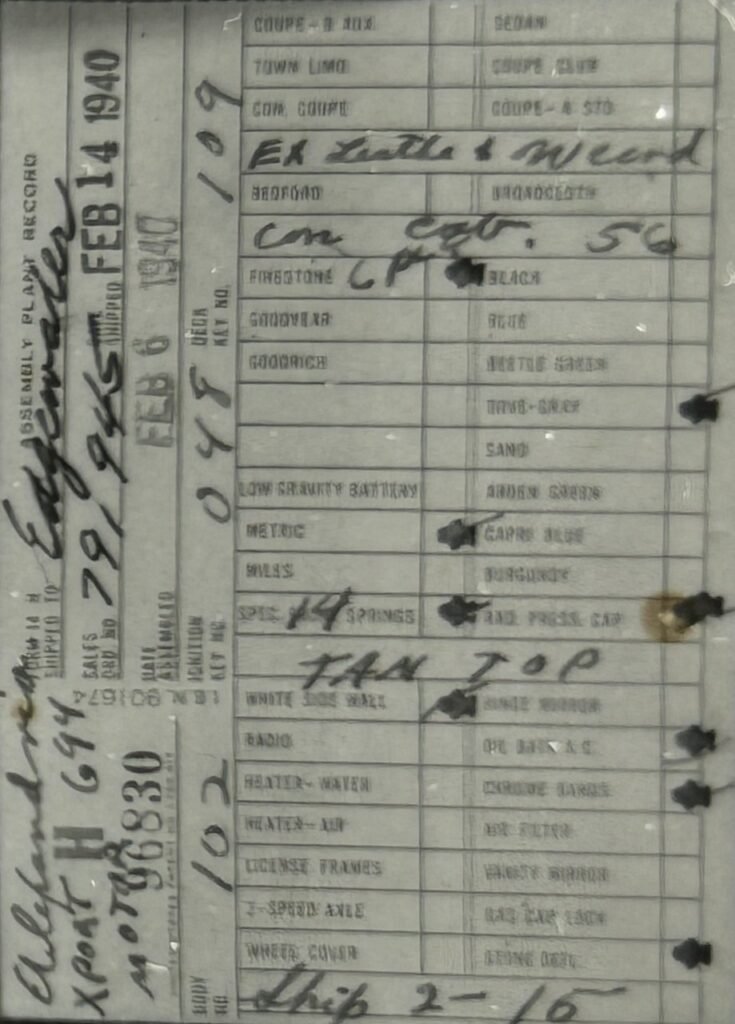 Alexandria
XPORT H 694
MOTOR 96830
FORM 14 H ASSEMBLY PLANT RECORD
SHIPPED TO Edgewater
SALES ORD NO 791945 SHIPPED FEB 14 1940
DATE ASSEMBLED FEB 6 1940
BODY NO. 102 IGNITION KEY NO. 048 DECK KEY NO. 109
COUPE-B AUX SEDAN
TOWN LIMO COUPE CLUB
CON. COUPE COUPE-A STD
EX Leather &
BEDFORD BROADCLOTH
Con Cab. 56
FIRESTONE 6 P BLACK
GOODYEAR BLUE
GOODRICH GREEN
DOVE-GRAY
SAND
LOW GRAVITY BATTERY GREEN
METRIC CAPRI BLUE
MILES BURGUNDY
SPEC 14 SPRINGS RAD. PRESS. CAP
TAN TOP
WHITE SIDE WALL HINGE MIRROR
RADIO OIL BATH A.C.
HEATER-WATER CHROME BANDS
HEATER-AIR AIR FILTER
LICENSE FRAMES VANITY MIRROR
2-SPEED AXLE GAS CAP LOCK
WHEEL COVER
Ship 2-15